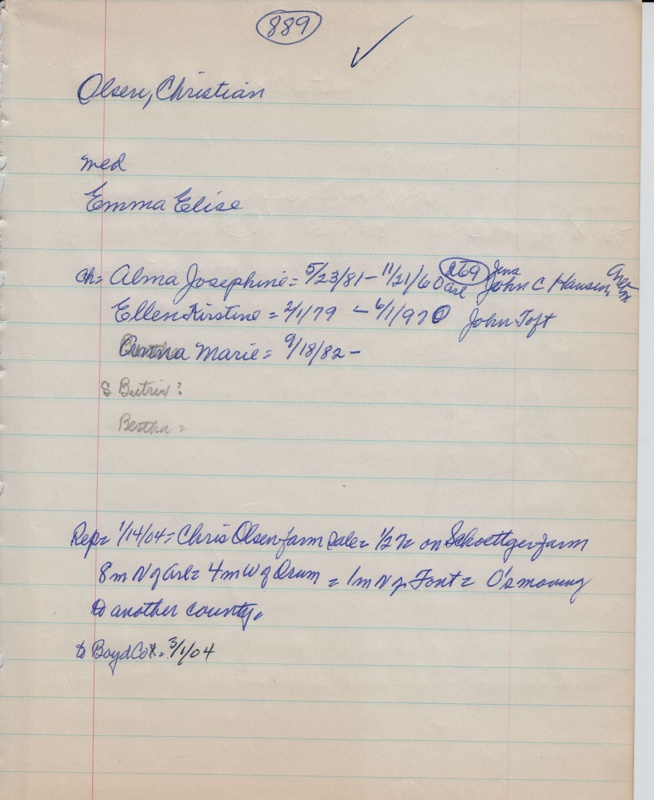 889
Olsen, Christian
med
Emma Elise
ch= Alma Josephine = 5/23/81 - 11/21/60 269 Arl Jens John C Hansen,
Ellen Kirstine = 2/1/79 - 6/1/970 John Toft
Marie = 9/18/82 -
S Butrix?
Bertha =
Rep= 1/14/04 = Chris Olsen farm sale = 1/27= on Schoettger farm
8 m N of Arl= 4 m W of Orum = 1 m N of Font = O's moving
to another county.
to Boyd Co. 3/1/04